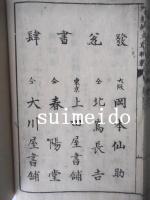 發兌書肆
大阪 岡本仙助
仝 北島長吉
東京 上田屋書舖
仝 春陽堂
仝 大川屋書舖
suimeido